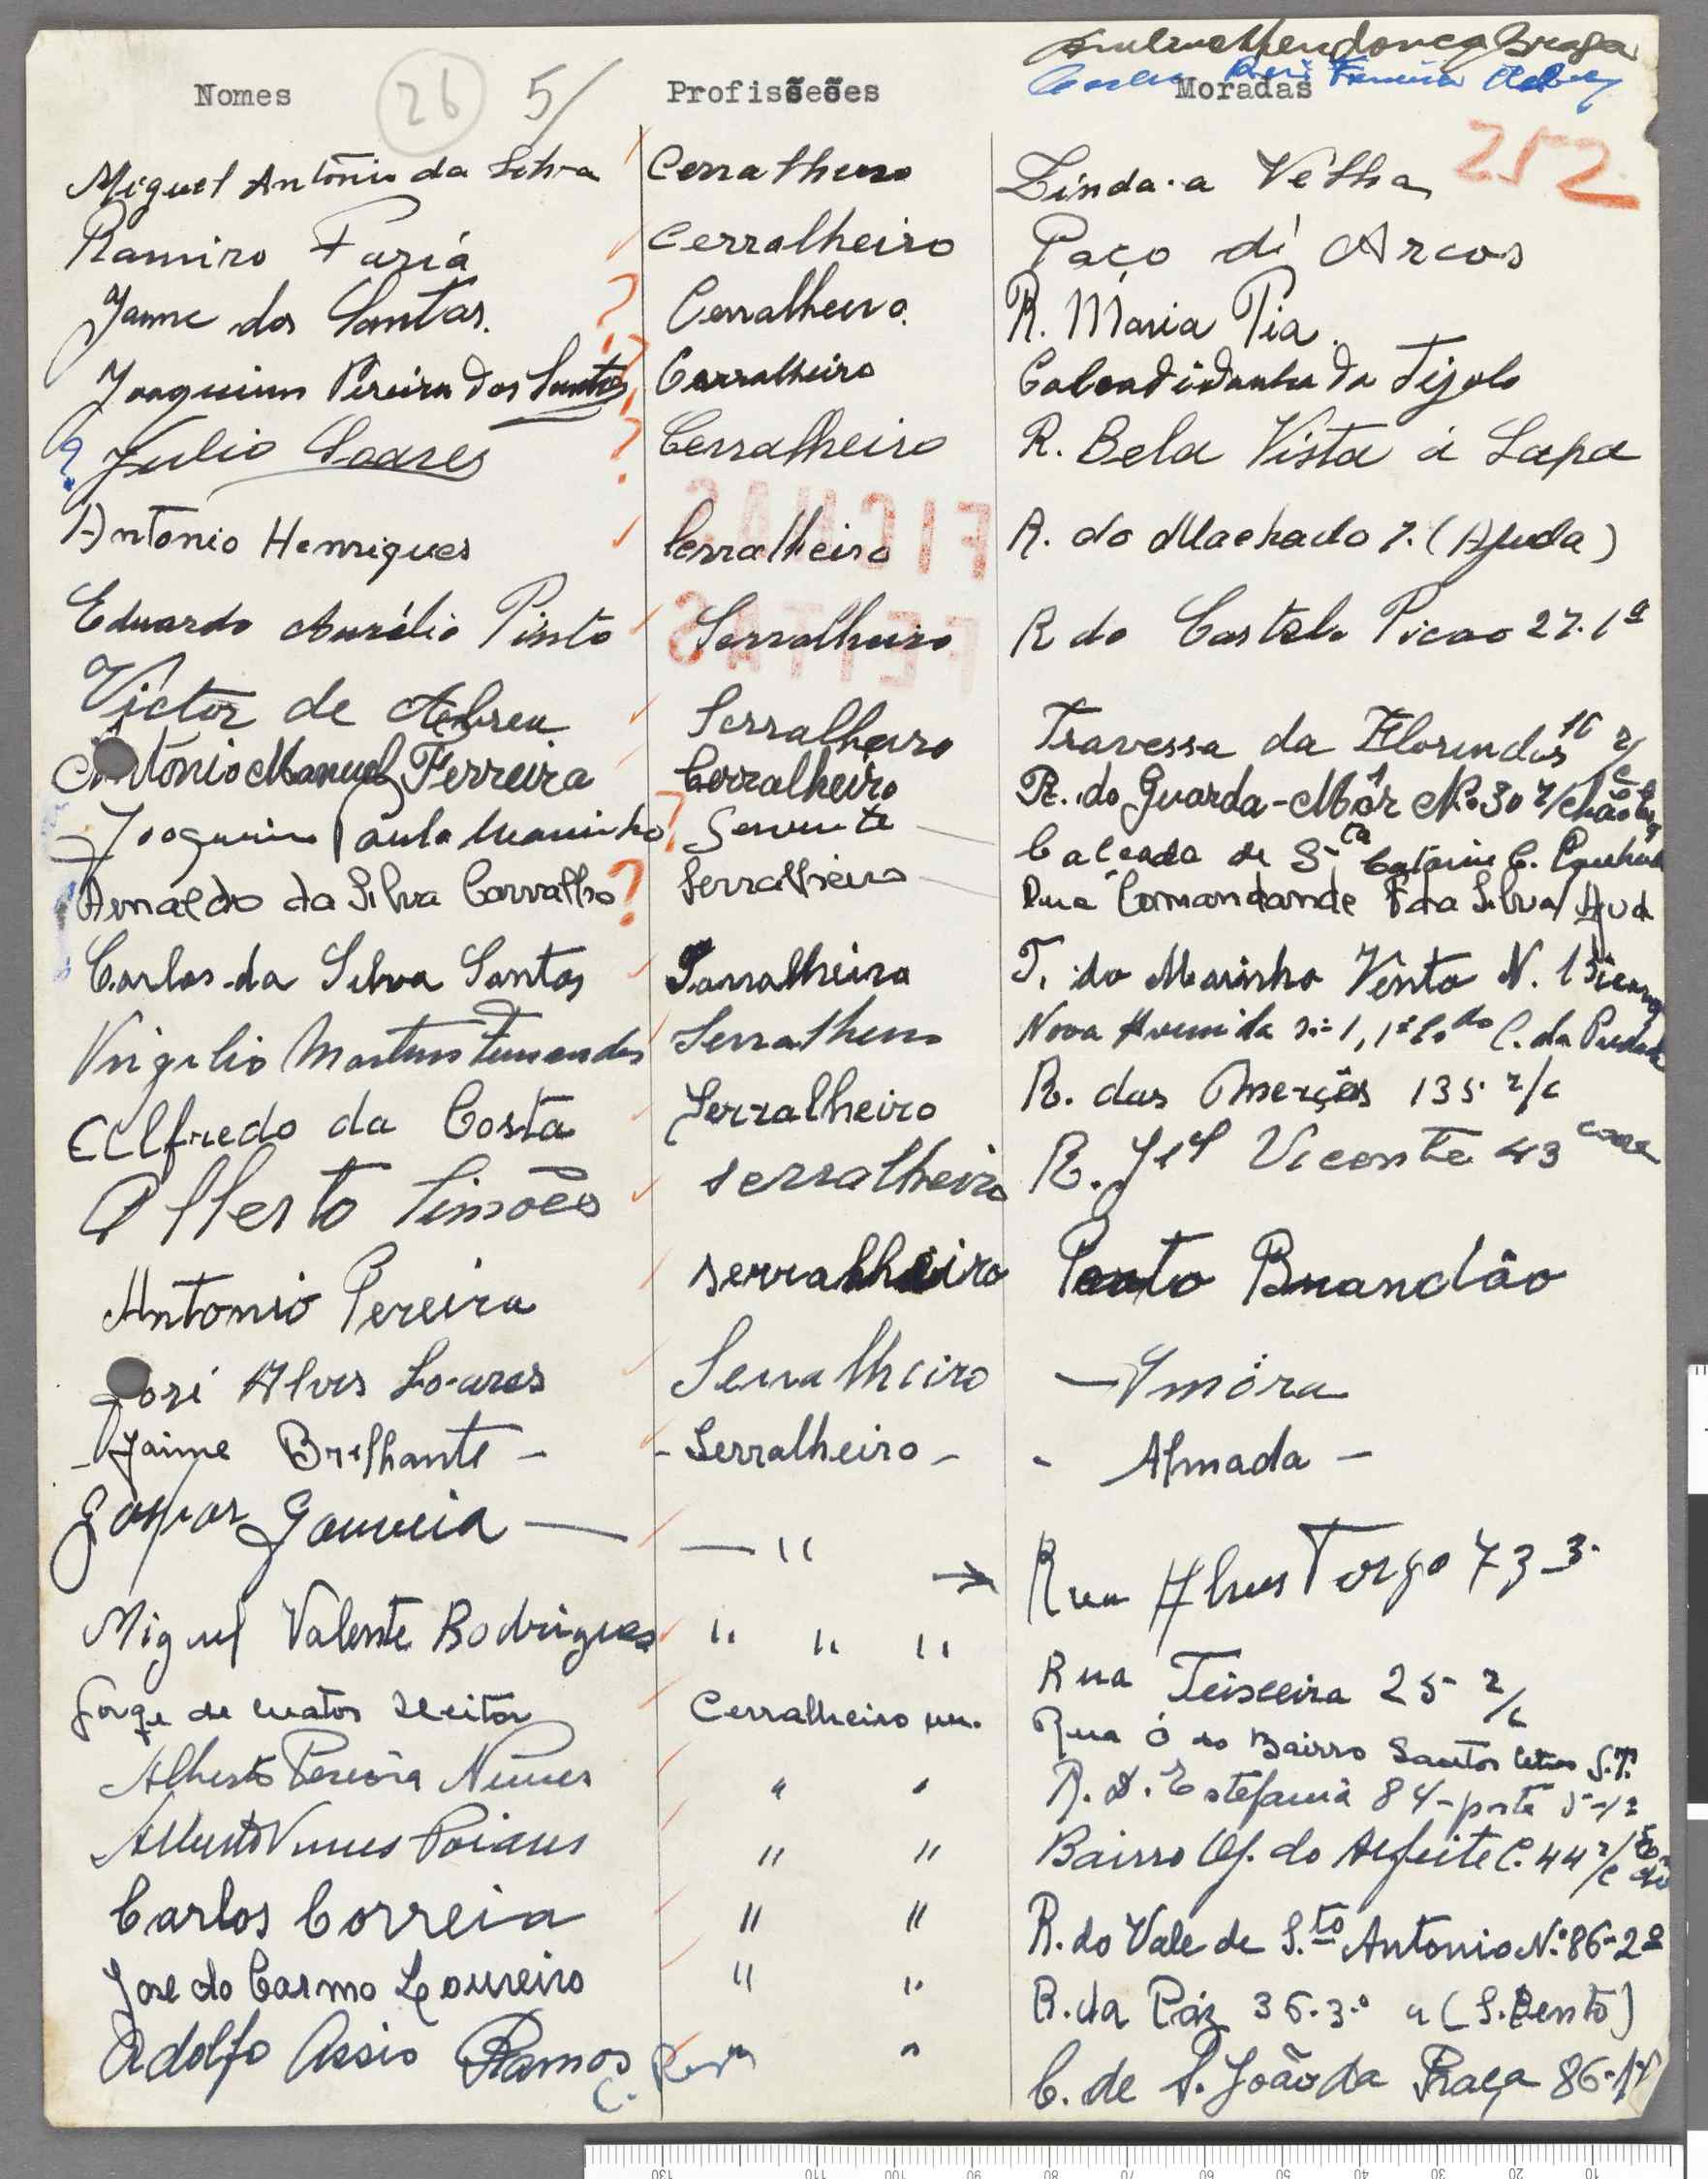 Mendonça Braga
Nomes 26 5/ Profissões Moradas
252
Miguel António da Silva Cerralheiro Linda-a Velha
Ramiro Faria Cerralheiro Paço di Arcos
Jaime dos Santos. ? Cerralheiro. R. Maria Pia.
Joaquim Pereira dos Santos ? Cerralheiro do Tijolo
? Julio Soares ? Cerralheiro R. Bela Vista á Lapa
FICHAS
Antonio Henriques Cerralheiro R. do Machado 7. (Ajuda)
FEITAS
Eduardo Aurélio Pinto Serralheiro R do Castelo Picao 27. 1º
Victor de Abreu Serralheiro Travessa da
António Manuel Ferreira Cerralheiro R. do Guarda-Môr Nº 30 r/chão
Joaquim Paula Marinho ? Servente Calçada de Sta
Arnaldo da Silva Carvalho ? Serralheiro Rua Comandande da Silva Ajuda
Carlos da Silva Santos Serralheiro T. do Marinho Vento N. 1
Virgilio Martins Fernandes Serralheiro Nova Avenida C. da
Alfredo da Costa Serralheiro R. das Merçês 135 r/c
Alberto Simões serralheiro R. Jil Vicente 43
Antonio Pereira serralheiro Porto Brandão
José Alves Soares Serralheiro — Amóra
- Jaime Brilhante - - Serralheiro - - Almada -
Gaspar Gouveia — — " → Rua Alves Torgo 73 3.
Miguel Valente Rodrigues " " " Rua Teixeira 25 r/c
Jorge de Matos Cerralheiro Rua Ó do Bairro Santos
Alberto Pereira Nunes " " R. D. Estefania 84-
Alberto Nunes " " Bairro Of. do Alfeite C. 44 r/c
Carlos Correia " " R. do Vale de S.to Antonio Nº 86-2º
José do Carmo Loureiro " " R. da Páz 36.3.º a (S. Bento)
Adolfo Assis Ramos " " C. de S. João da Praça 86-